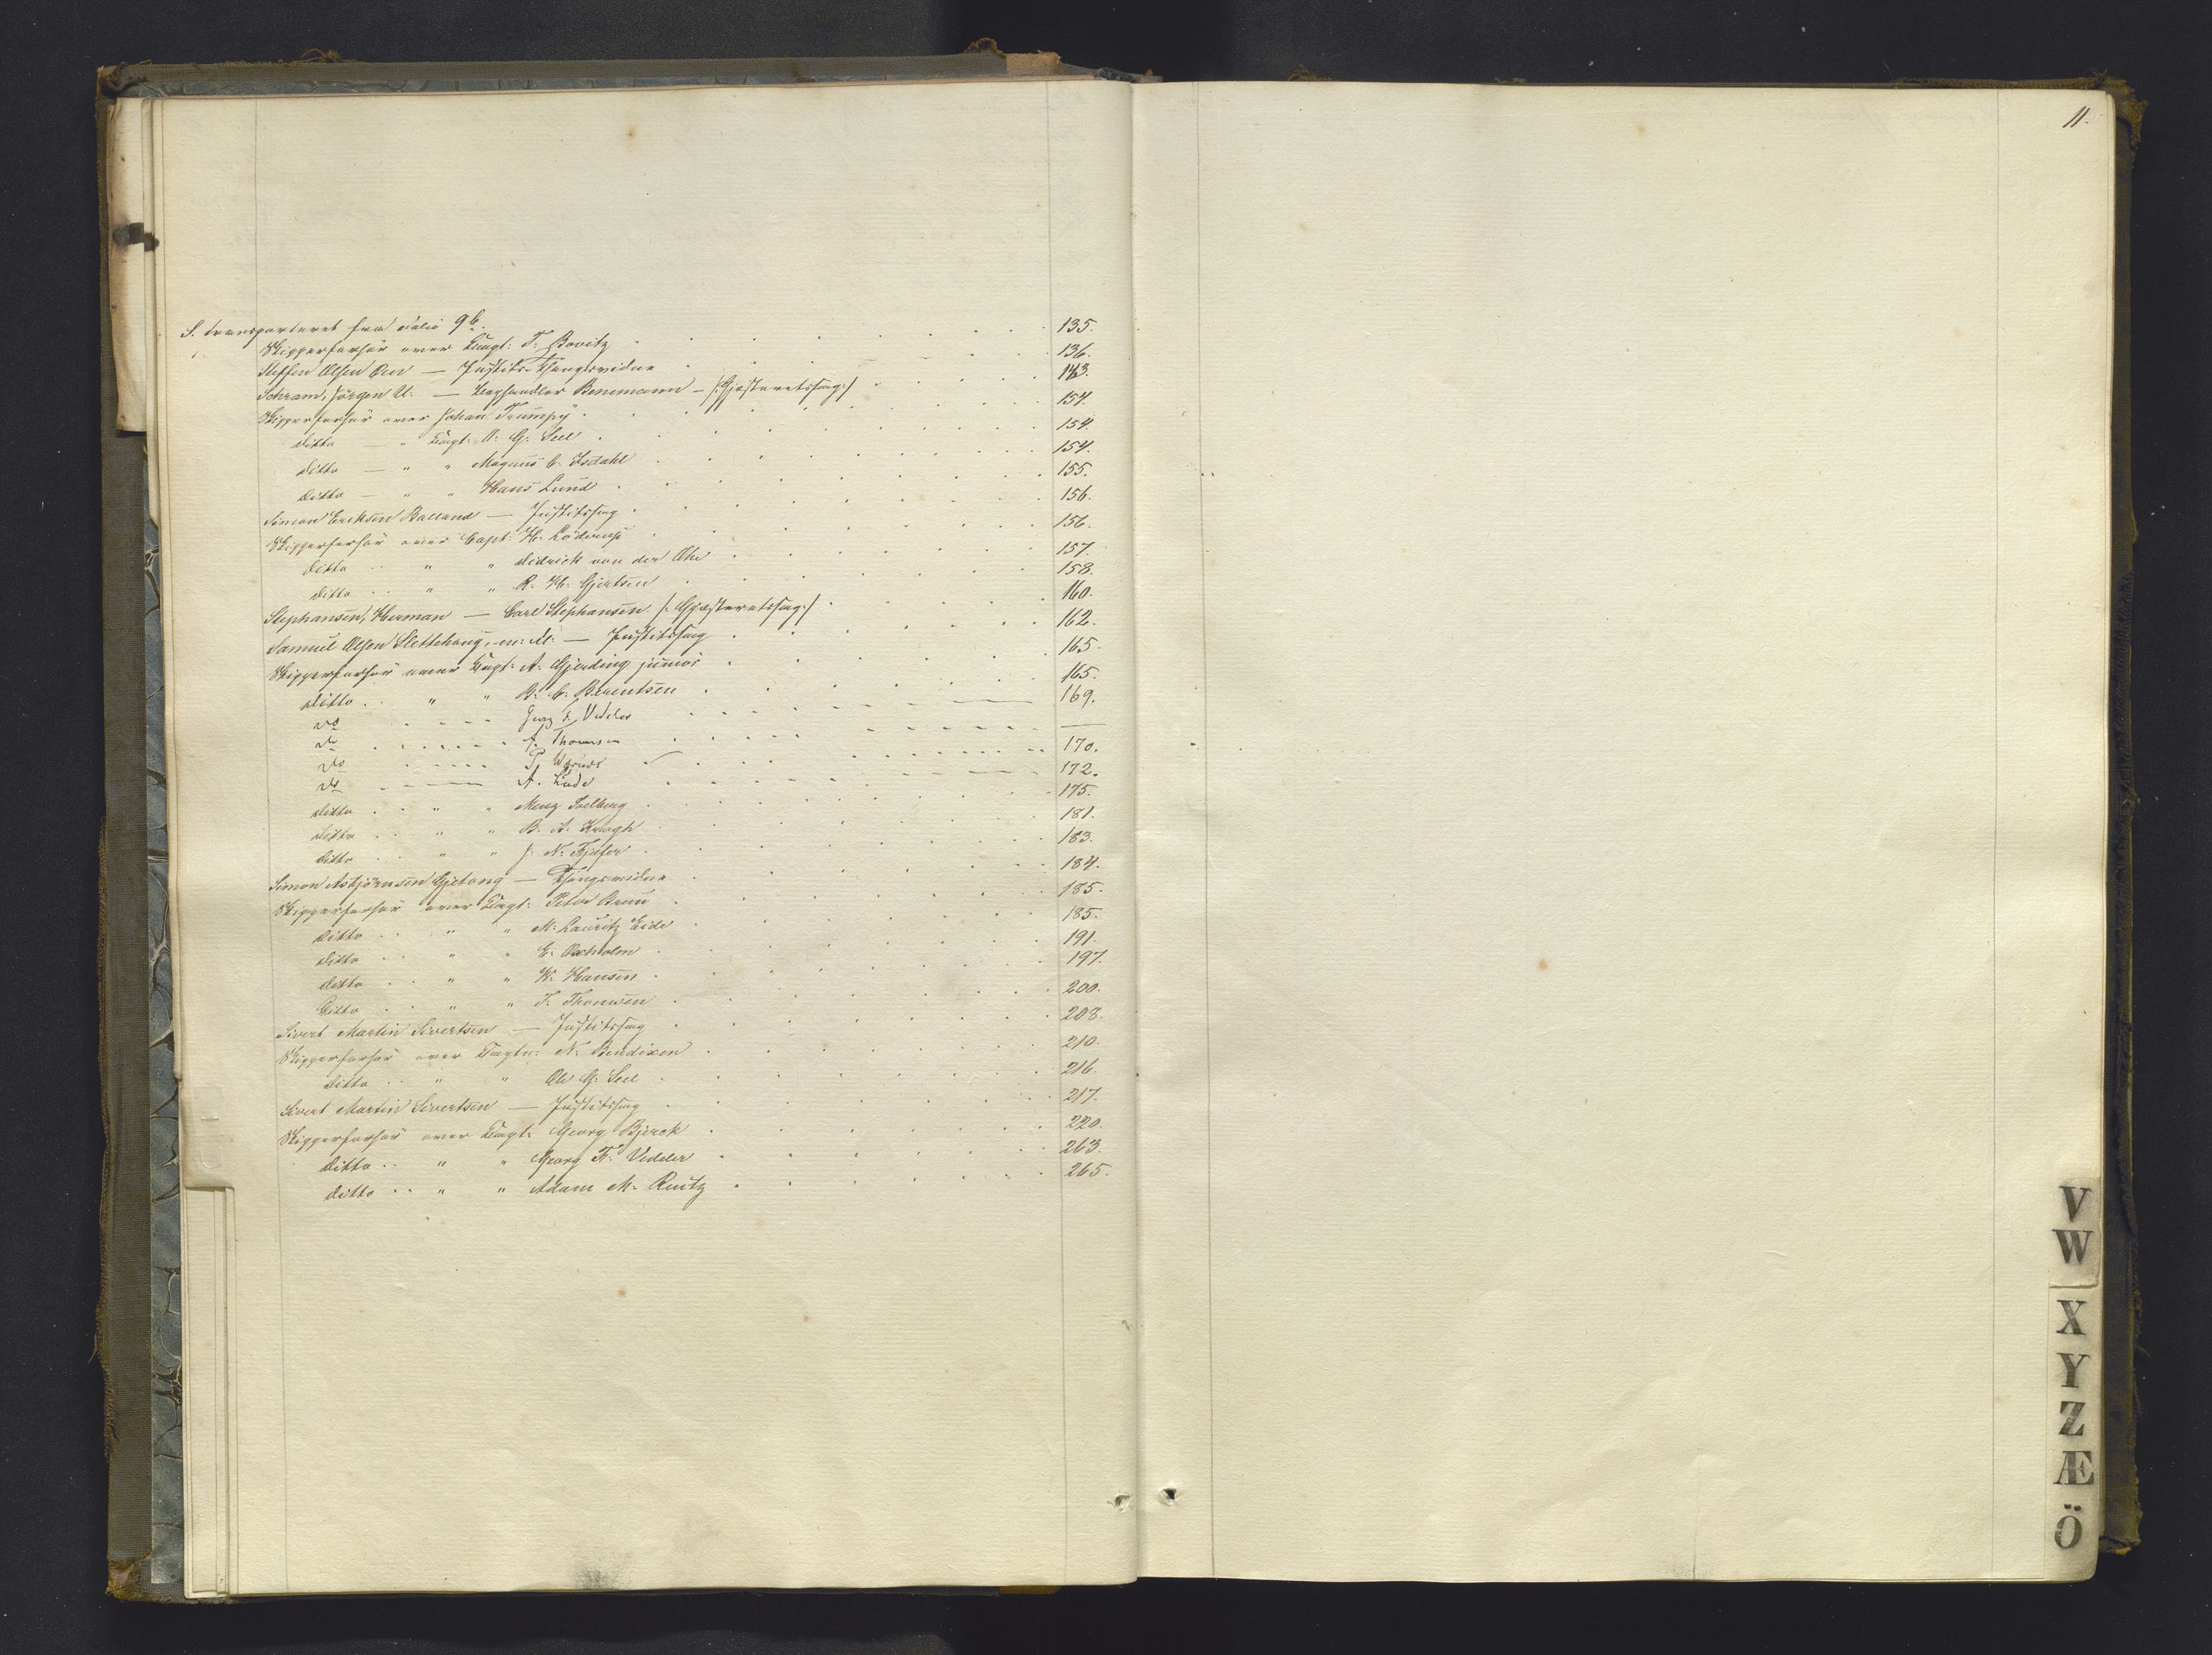 11.
S. transporteret fra Folio 9b.
Skipperforhör over Capt: T. Bovitz 135.
Steffen Olsen Aen — Justits-Thingsvidne 136.
Schram, Jörgen U. — Boghandler Bennemann — /:Gjæsteretssag:/ 143.
Skipperforhör over Johan Trumpÿ 154.
ditto — " Capt: O. G. Seel 154.
ditto — " " Magnus C. Isdahl 154.
ditto — " " Hans Lund 155.
Simon Eriksen Balland — Justitssag 156.
Skipperforhör over Capt: H. Röderup 156.
ditto " " Didrick von der Ohe 157.
ditto " " R. H. Gjertsen 158.
Stephansen, Herman — Carl Stephansen. /:Gjæsteretssag:/ 160.
Samuel Olsen Slettehaug, m: Fl: — Justitssag 162.
Skipperforhör over Capt: A. Gjerding junior 165.
ditto " " B. C. Berentsen 165.
do Georg F. Vedeler 169.
do A. Thomsen —
do P. 170.
do A. Lude 172.
ditto " " Menz Solberg 175.
ditto " " B. A. Kragh 181.
ditto " " J. N. Fjelser 183.
Simon Asbjörnsen Gjetang — Thingsvidne 184.
Skipperforhör over Capt: Peter Bruu 185.
ditto " " M. Lauritz Eide 185.
ditto " " E. Oxholm 191.
ditto " " W. Hansen 197.
ditto " " T. Thomsen 200.
Sivert Martin Sivertsen — Justitssag 208.
Skipperforhör over Captn: N. Bendixen 210.
ditto " " Ole G. Seel 216.
Sivert Martin Sivertsen — Justitssag 217.
Skipperforhör over Capt: Georg Bjerck 220.
ditto " " Georg Fr. Vedeler 263.
ditto " " Adam M. Reutz 265.
V
W
X
Y
Z
Æ
Ö